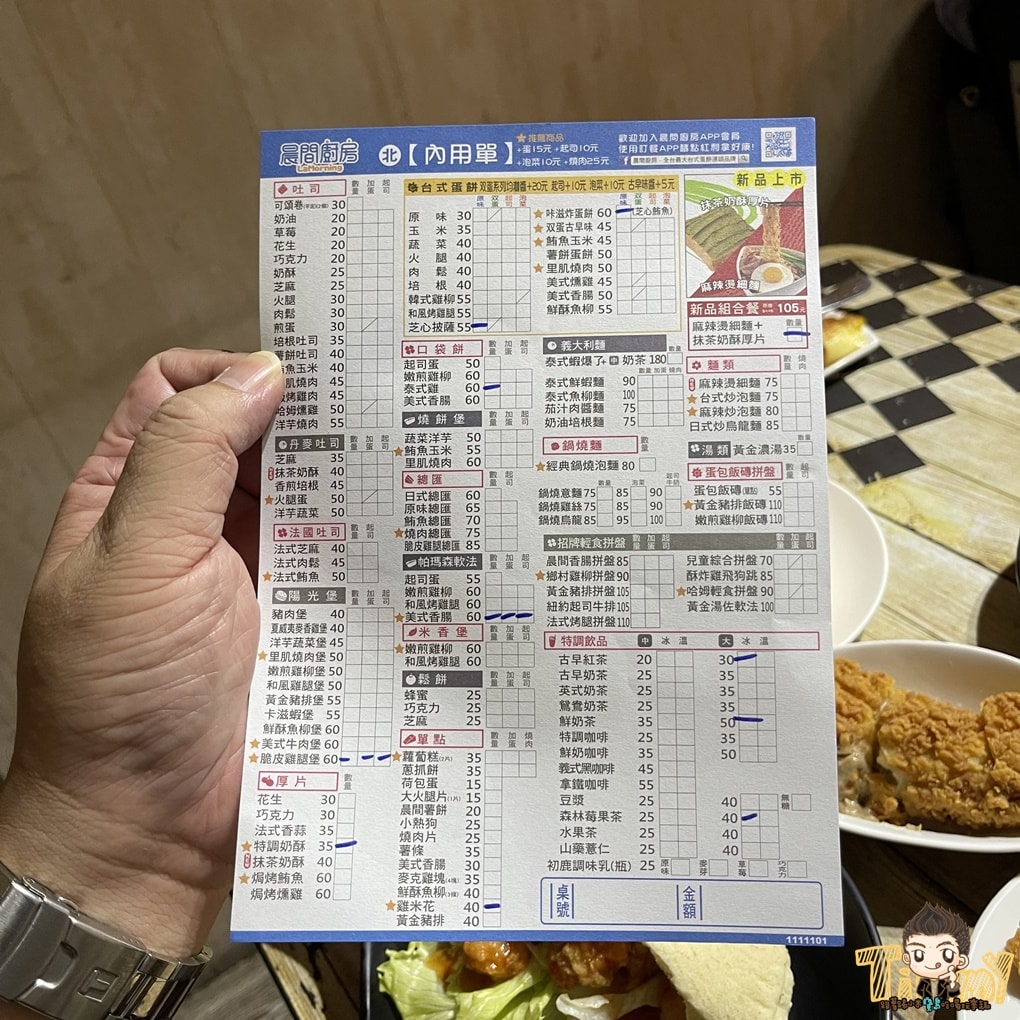 晨間廚房
LaMorning
北【內用單】
★推薦商品
+蛋15元 +起司10元
+泡菜10元 +燒肉25元
歡迎加入晨間廚房APP會員
使用訂餐APP請點紅利拿好康!
晨間廚房-全台最大台式蛋餅連鎖品牌
吐司 數量 加蛋 起司
可頌卷 30
奶油 20
草莓 20
花生 20
巧克力 20
奶酥 25
芝麻 25
火腿 30
肉鬆 30
煎蛋 30
培根吐司 35
薯餅吐司 40
鮪魚玉米 40
里肌燒肉 45
烤雞肉 45
哈姆燻雞 50
洋芋燒肉 55
丹麥吐司 數量 加蛋 起司
芝麻 35
抹茶奶酥 40
香煎培根 45
★火腿蛋 50
洋芋蔬菜 50
法國吐司 數量 加蛋 起司
法式芝麻 40
法式肉鬆 45
★法式鮪魚 50
陽光堡 數量 加蛋 起司
豬肉堡 40
夏威夷麥香雞堡 40
洋芋蔬菜堡 45
★里肌燒肉堡 50
嫩煎雞柳堡 50
和風雞腿堡 50
黃金豬排堡 55
卡滋蝦堡 55
鮮酥魚柳堡 60
★美式牛肉堡 60
★脆皮雞腿堡 60
厚片 數量
花生 30
巧克力 30
法式香蒜 35
★特調奶酥 35
抹茶奶酥 40
★焗烤鮪魚 60
焗烤燻雞 60
台式蛋餅 双蛋系列均蘸醬+20元 起司+10元 泡菜+10元 古早味醬+5元
原味 双蛋 起司 泡菜
原味 30
玉米 35
蔬菜 40
火腿 40
肉鬆 40
培根 40
韓式雞柳 55
和風烤雞腿 55
芝心披薩 55
原味 双蛋 起司 泡菜
★咔滋炸蛋餅 60 (芝心鮪魚)
★双蛋古早味 45
★鮪魚玉米 45
薯餅蛋餅 50
★里肌燒肉 50
美式燻雞 45
美式香腸 50
鮮酥魚柳 55
口袋餅 數量 加蛋 起司
起司蛋 50
嫩煎雞柳 60
泰式雞 60
美式香腸 60
燒餅堡 數量 加蛋 起司
蔬菜洋芋 50
★鮪魚玉米 55
里肌燒肉 60
總匯 數量 加蛋 起司
日式總匯 60
原味總匯 65
鮪魚總匯 70
★燒肉總匯 75
脆皮雞腿總匯 85
帕瑪森軟法 數量 加蛋 起司
起司蛋 55
嫩煎雞柳 60
和風烤雞腿 60
★美式香腸 60
米香堡 數量 加蛋 起司
★嫩煎雞柳 60
和風烤雞腿 60
鬆餅 數量 加蛋 起司
蜂蜜 25
巧克力 25
芝麻 25
單點 數量 加蛋 燒肉
★蘿蔔糕(2片) 35
蔥抓餅 35
荷包蛋 15
大火腿片(1片) 15
晨間薯餅 20
小熱狗 25
燒肉片 25
薯條 35
美式香腸 30
麥克雞塊(4塊) 35
鮮酥魚柳(3條) 40
★雞米花 40
黃金豬排 40
義大利麵 數量
泰式蝦爆了+中奶茶 180
數量 加蛋 燒肉
泰式鮮蝦麵 90
泰式魚柳麵 100
茄汁肉醬麵 75
奶油培根麵 75
鍋燒麵 數量
★經典鍋燒泡麵 80
數量 泡菜 起司牛奶
鍋燒意麵 75 85 90
鍋燒雞絲 75 85 90
鍋燒烏龍 85 95 100
招牌輕食拼盤 數量 加蛋 起司 數量 加蛋 起司
晨間香腸拼盤 85
★鄉村雞柳拼盤 90
黃金豬排拼盤 105
紐約起司牛排 105
法式烤雞拼盤 110
兒童綜合拼盤 70
酥炸雞飛狗跳 85
★哈姆輕食拼盤 90
黃金湯佐軟法 100
特調飲品 中 冰 溫 大 冰 溫
古早紅茶 20 30
古早奶茶 25 35
英式奶茶 25 35
鴛鴦奶茶 25 35
鮮奶茶 35 50
特調咖啡 25 35
鮮奶咖啡 35 50
義式黑咖啡 45
拿鐵咖啡 55
豆漿 25 40 無糖
森林莓果茶 25 40
水果茶 25 40
山藥薏仁 25 40
初鹿調味乳(瓶) 25 原味 麥芽 草莓 巧克力
桌號 金額
1111101
新品上市
抹茶奶酥厚片
麻辣燙細麵
新品組合餐 105元
麻辣燙細麵+
抹茶奶酥厚片
數量
麵類 數量 加蛋 起司
麻辣燙細麵 75
★台式炒泡麵 75
★麻辣炒泡麵 80
日式炒烏龍麵 85
湯類 黃金濃湯 35 數量
蛋包飯磚拼盤 數量 加蛋 起司
蛋包飯磚(單點) 55
★黃金豬排飯磚 110
嫩煎雞柳飯磚 110